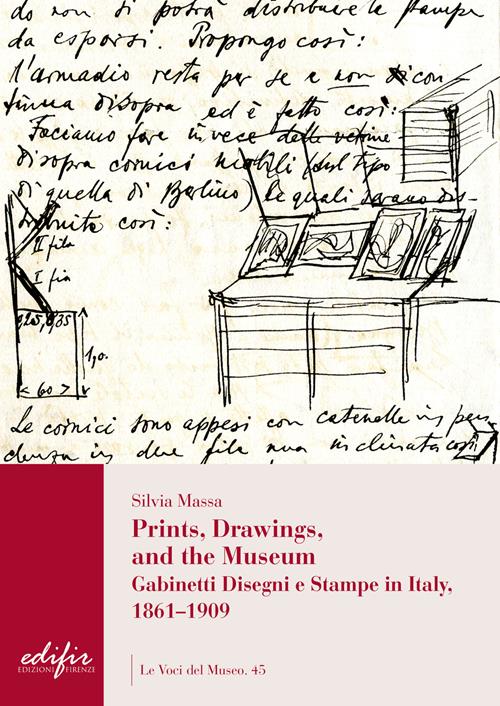 do non si potrà distribuire le stampe
da esporsi. Propongo così:
l'armadio resta per se e non si con-
tinua disopra ed è fatto così:
Facciamo fare invece delle vetrine
disopra cornici mobili (sul tipo
di quella di Berlino) le quali saranno dis-
tribuite così:
II fila
I fila
1,90.
< 60 >
Le cornici sono appesi con catenelle in pen-
denza in due file una inclinata così
Silvia Massa
Prints, Drawings,
and the Museum
Gabinetti Disegni e Stampe in Italy,
1861–1909
edifir
EDIZIONI FIRENZE
Le Voci del Museo. 45